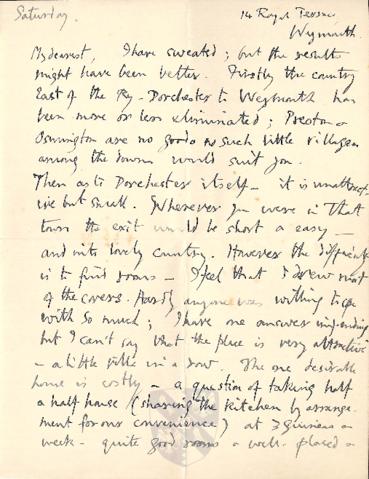 Saturday.
14 Royal Terrace
Weymouth
My dearest, I have sweated; but the results
might have been better. Firstly the country
East of the Ry. Dorchester to Weymouth has
been more or less eliminated; Preston &
Osmington are no good & such little villages
among the downs would suit you.
Then as to Dorchester itself — it is unattract-
ive but small. Wherever you were in that
town the exit would be short & easy —
and into lovely country. However the difficulty
is to find rooms — I feel that I drew most
of the covers. Hardly anyone was willing to
with so much; I have one answer
but I can't say that the place is very attractive
— a little villa in a row. The one desirable
house is costly — a question of taking half
a half house (sharing the kitchen by arrange-
ment for our convenience) at 3 guineas a
week — quite good rooms & well-placed &